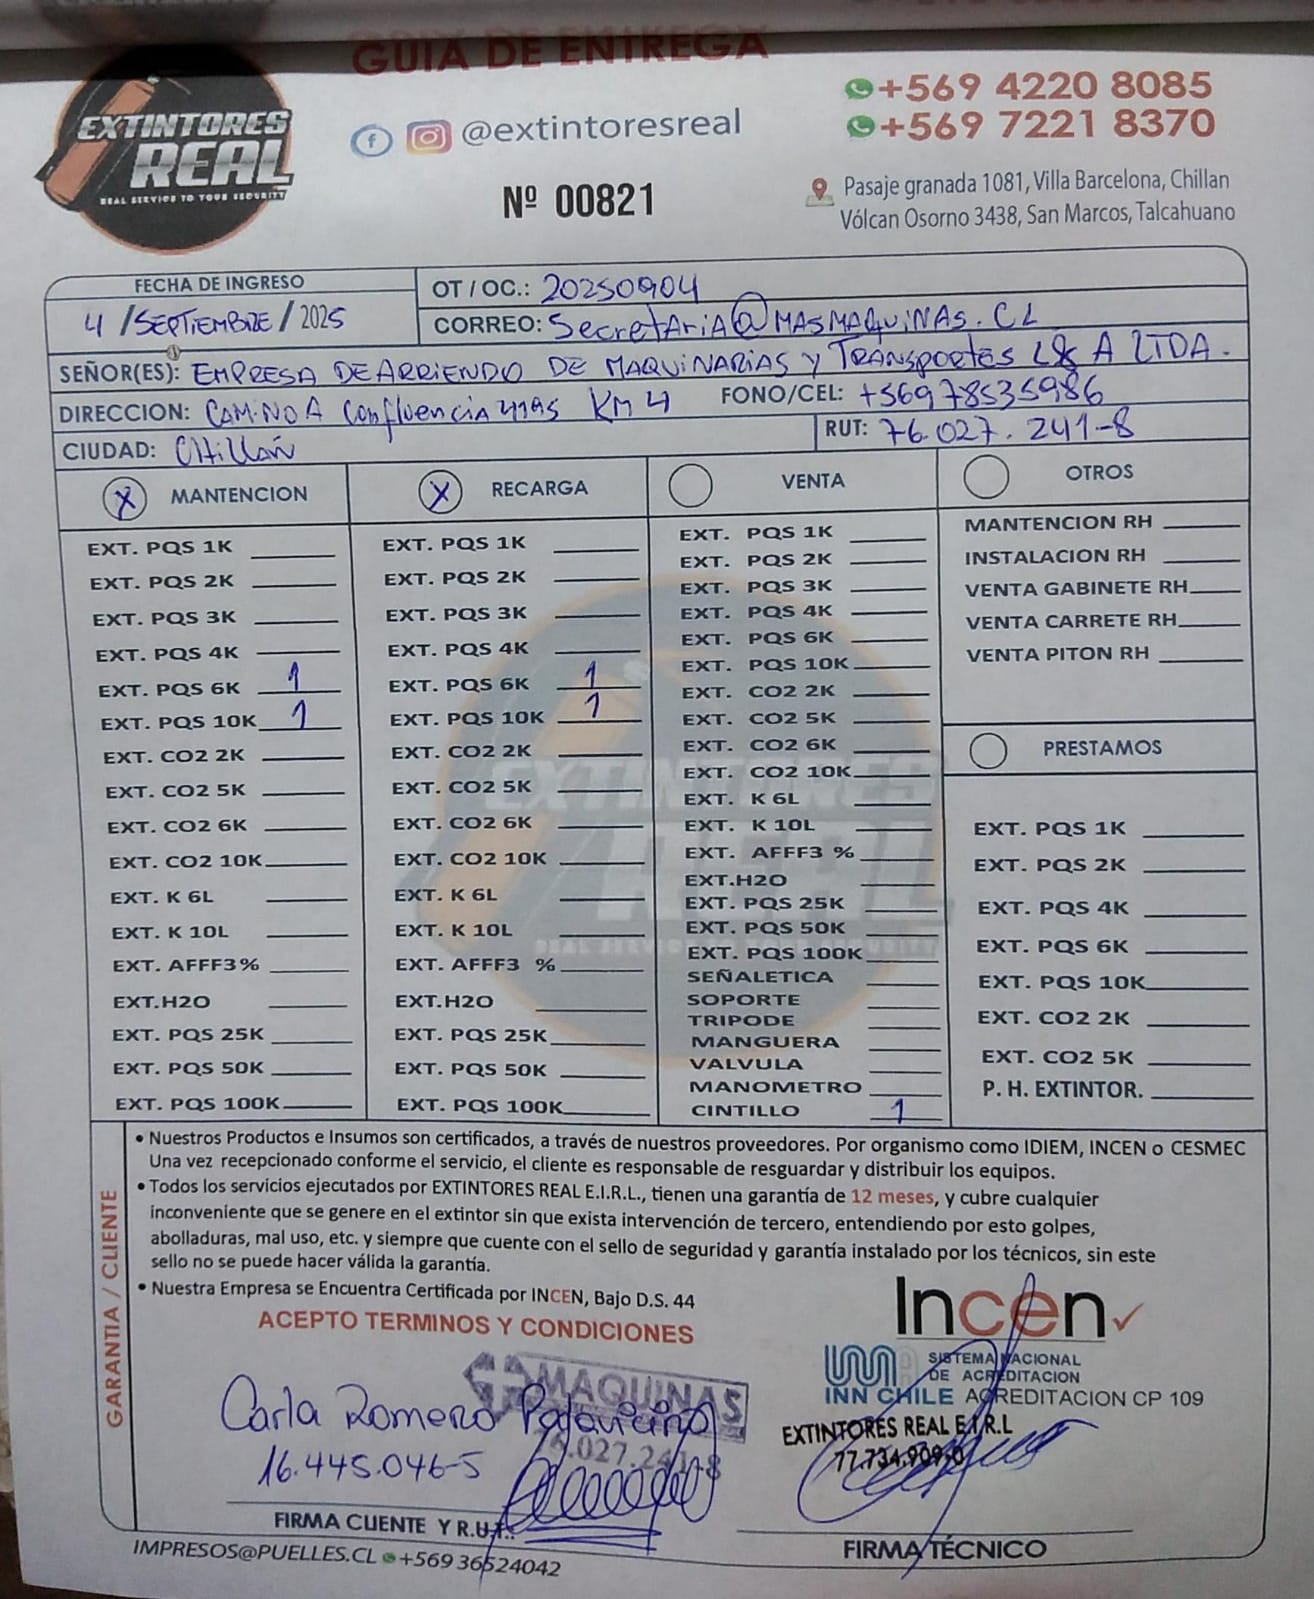 GUIA DE ENTREGA
EXTINTORES
REAL
REAL SERVICE TO YOUR SECURITY
@extintoresreal
Nº 00821
+569 4220 8085
+569 7221 8370
Pasaje granada 1081, Villa Barcelona, Chillan
Vólcan Osorno 3438, San Marcos, Talcahuano
FECHA DE INGRESO
4 / SEPTIEMBRE / 2025
OT / OC.: 20250904
CORREO: Secretaria@MASMAQUINAS.CL
SEÑOR(ES): EMPRESA DE ARRIENDO DE MAQUINARIAS Y TRANSPORTES L&A LTDA.
DIRECCION: CAMINO A Confluencia 4195 KM 4
FONO/CEL: +56978535986
CIUDAD: CHillán
RUT: 76.027.241-8
X MANTENCION
EXT. PQS 1K
EXT. PQS 2K
EXT. PQS 3K
EXT. PQS 4K
EXT. PQS 6K 1
EXT. PQS 10K 1
EXT. CO2 2K
EXT. CO2 5K
EXT. CO2 6K
EXT. CO2 10K
EXT. K 6L
EXT. K 10L
EXT. AFFF3%
EXT.H2O
EXT. PQS 25K
EXT. PQS 50K
EXT. PQS 100K
X RECARGA
EXT. PQS 1K
EXT. PQS 2K
EXT. PQS 3K
EXT. PQS 4K
EXT. PQS 6K 1
EXT. PQS 10K 1
EXT. CO2 2K
EXT. CO2 5K
EXT. CO2 6K
EXT. CO2 10K
EXT. K 6L
EXT. K 10L
EXT. AFFF3 %
EXT.H2O
EXT. PQS 25K
EXT. PQS 50K
EXT. PQS 100K
VENTA
EXT. PQS 1K
EXT. PQS 2K
EXT. PQS 3K
EXT. PQS 4K
EXT. PQS 6K
EXT. PQS 10K
EXT. CO2 2K
EXT. CO2 5K
EXT. CO2 6K
EXT. CO2 10K
EXT. K 6L
EXT. K 10L
EXT. AFFF3 %
EXT.H2O
EXT. PQS 25K
EXT. PQS 50K
EXT. PQS 100K
SEÑALETICA
SOPORTE
TRIPODE
MANGUERA
VALVULA
MANOMETRO
CINTILLO 1
OTROS
MANTENCION RH
INSTALACION RH
VENTA GABINETE RH
VENTA CARRETE RH
VENTA PITON RH
PRESTAMOS
EXT. PQS 1K
EXT. PQS 2K
EXT. PQS 4K
EXT. PQS 6K
EXT. PQS 10K
EXT. CO2 2K
EXT. CO2 5K
P. H. EXTINTOR.
EXTINTORES
REAL
REAL SERVICE TO YOUR SECURITY
GARANTIA / CLIENTE
• Nuestros Productos e Insumos son certificados, a través de nuestros proveedores. Por organismo como IDIEM, INCEN o CESMEC
Una vez recepcionado conforme el servicio, el cliente es responsable de resguardar y distribuir los equipos.
• Todos los servicios ejecutados por EXTINTORES REAL E.I.R.L., tienen una garantía de 12 meses, y cubre cualquier
inconveniente que se genere en el extintor sin que exista intervención de tercero, entendiendo por esto golpes,
abolladuras, mal uso, etc. y siempre que cuente con el sello de seguridad y garantía instalado por los técnicos, sin este
sello no se puede hacer válida la garantía.
• Nuestra Empresa se Encuentra Certificada por INCEN, Bajo D.S. 44
ACEPTO TERMINOS Y CONDICIONES
Incen
INN SISTEMA NACIONAL
DE ACREDITACION
INN CHILE ACREDITACION CP 109
MAQUINAS
76.027.241-8
Carla Romero Palavicino
16.445.046-5
EXTINTORES REAL E.I.R.L
77.734.909-0
FIRMA CLIENTE Y R.U.T.:
FIRMA TÉCNICO
IMPRESOS@PUELLES.CL +569 36524042